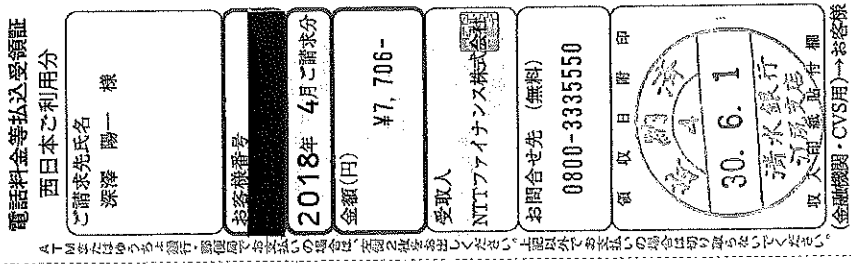 電話料金等払込受領証
西日本ご利用分
ご請求先氏名
深澤 陽一 様
お客様番号
2018年 4月ご請求分
金額(円)
¥7,706-
受取人
NTTファイナンス株式会社
お問合せ先 (無料)
0800-3335550
領収日附印
4
30.6.1
清水銀行
収入印紙貼付欄
(金融機関・CVS用)→お客様
ATMまたはゆうちょ銀行・郵便局でお支払いの場合は、左側2枚をお出しください。上記以外でお支払いの場合は切り取らないでください。